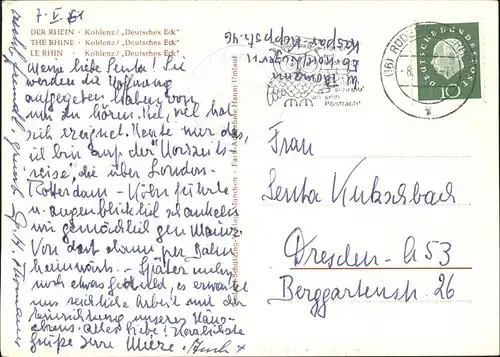 7. V. 61
DER RHEIN · Koblenz / „Deutsches Eck"
THE RHINE · Koblenz / „Deutsches Eck"
LE RHIN · Koblenz / „Deutsches Eck"
Meine liebe Senta! Sie
werden die Hoffnung
aufgegeben haben von
mir zu hören. Viel, viel hat
sich ereignet. Heute nur das,
ich bin auf der Hochzeits-
reise, die über London-
Rotterdam - Köln führte
u. augenblicklich schaukeln
wir gemächlich gen Mainz.
Von dort dann per Bahn
heimwärts. - Später mehr,
noch etwas Geduld, es erwartet
uns reichliche Arbeit mit der
Einrichtung unseres Häus-
chens. Alles Liebe! Herzlichste
Grüße Ihre Mieze. Auch
DEUTSCHE BUNDESPOST
10
an sein
Postfach"
Frau
Senta Kutschbach
Dresden-A 53
Berggartenstr. 26